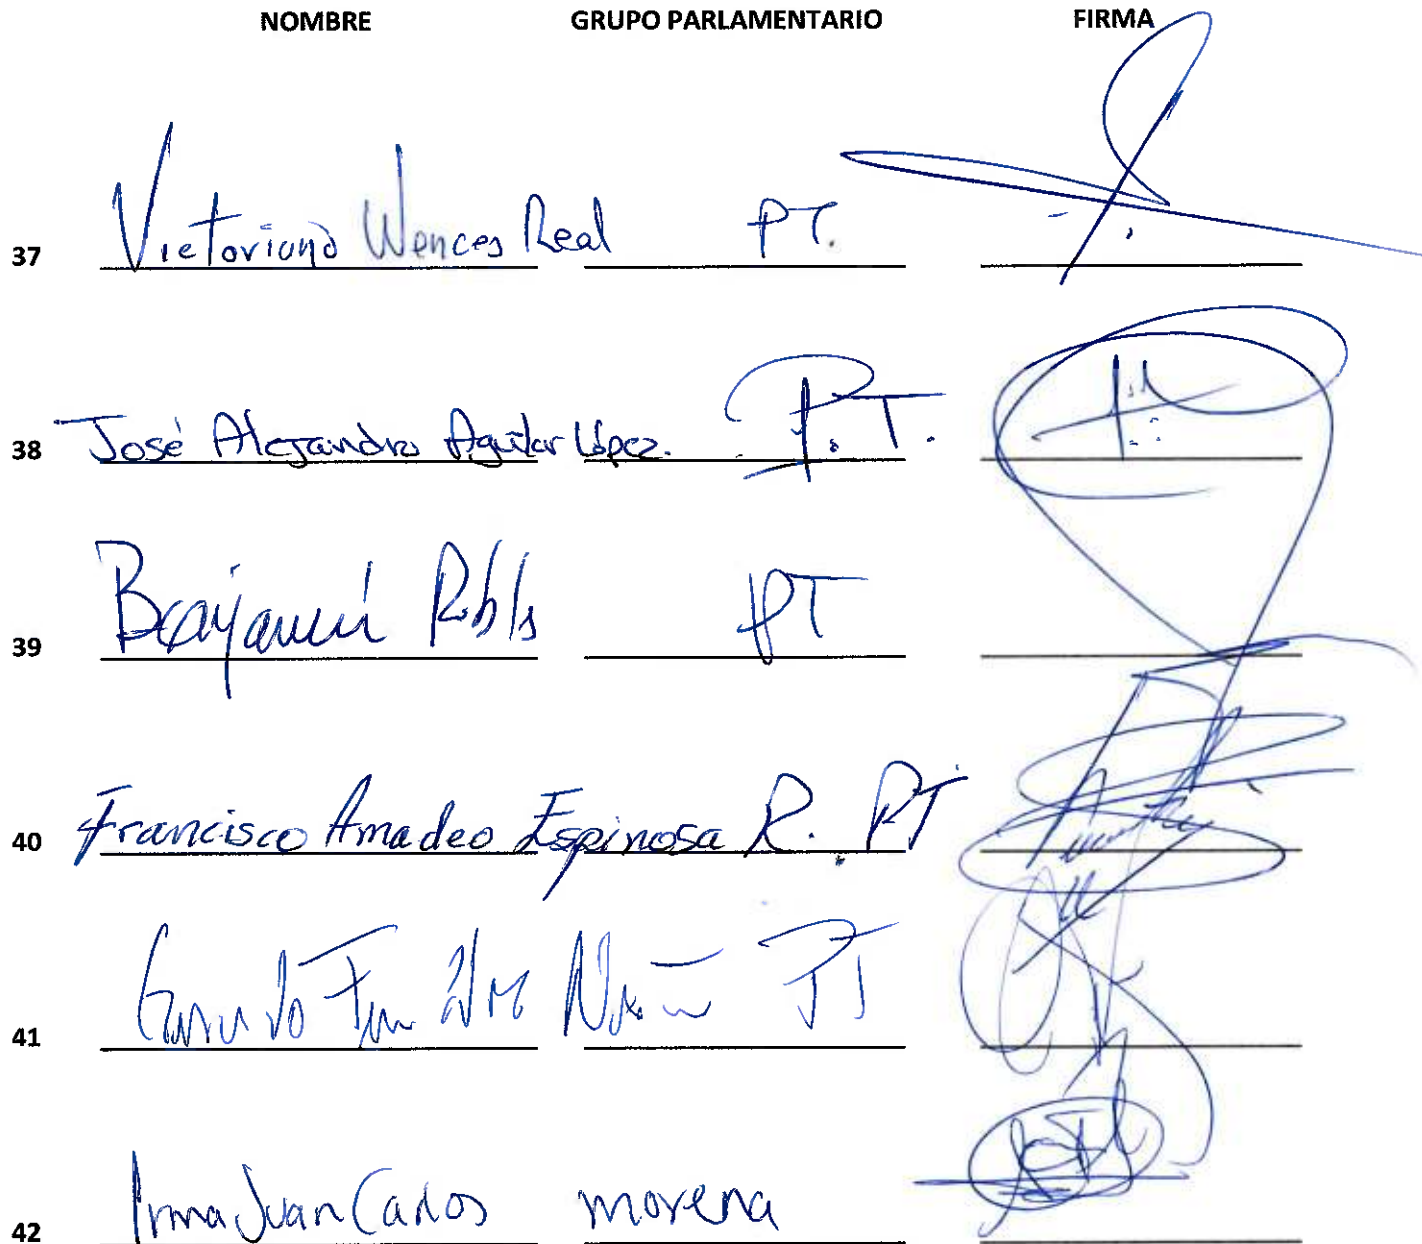 NOMBRE GRUPO PARLAMENTARIO FIRMA
37 Victoriano Wences Real PT.
38 José Alejandro Aguilar López. P.T.
39 Benjamín Robls PT
40 Francisco Amadeo Espinosa R. PT
41 PT
42 Irma Juan Carlos morena